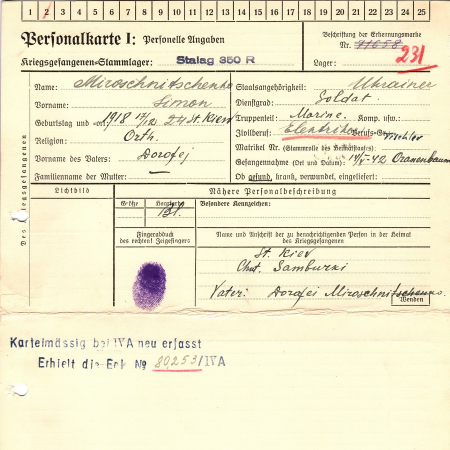 1 2 3 4 5 6 7 8 9 10 11 12 13 14 15 16 17 18 19 20 21 22 23 24 25
Personalkarte I: Personelle Angaben
Kriegsgefangenen-Stammlager: Stalag 350 R
Beschriftung der Erkennungsmarke
Nr. 91658
Lager: 231
Des Kriegsgefangenen
Name: Miroschnitschenko
Vorname: Simon
Geburtstag und -ort: 1918 17/12 St. Kiew
Religion: Orth.
Vorname des Vaters: Dorofej
Familienname der Mutter: —
Staatsangehörigkeit: Ukrainer
Dienstgrad: Soldat
Truppenteil: Marine. Komp. usw.:
Zivilberuf: Elektriker Berufs-Gr.:
Matrikel Nr. (Stammrolle des Heimatstaates):
Gefangennahme (Ort und Datum): 42 Oranenbaum
Ob gesund, krank, verwundet, eingeliefert:
Lichtbild
Nähere Personalbeschreibung
Größe
Haarfarbe
Besondere Kennzeichen:
Bl.
Fingerabdruck
des rechten! Zeigefingers
Name und Anschrift der zu benachrichtigenden Person in der Heimat
des Kriegsgefangenen
St. Kiev
Chut. Samburki
Vater: Dorofei Miroschnitschenko.
Wenden
Karteimässig bei IVA neu erfasst
Erhielt die Erk № 80253/IVA